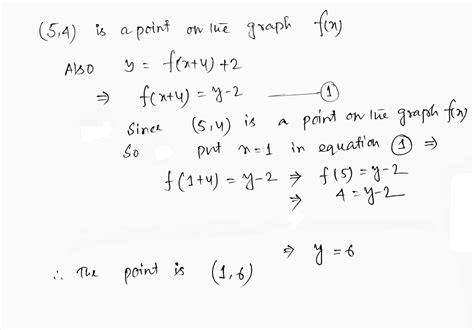 (5,4) is a point on the graph f(x)
Also y = f(x+4)+2
⇒ f(x+4) = y-2 —— ①
Since (5,4) is a point on the graph f(x)
So put x=1 in equation ① ⇒
f(1+4) = y-2 ⇒ f(5) = y-2
⇒ 4 = y-2
⇒ y = 6
∴ The point is (1,6)